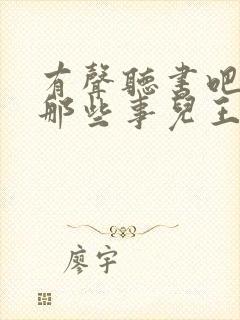 有聲聽書吧
那些事兒王
廖宇